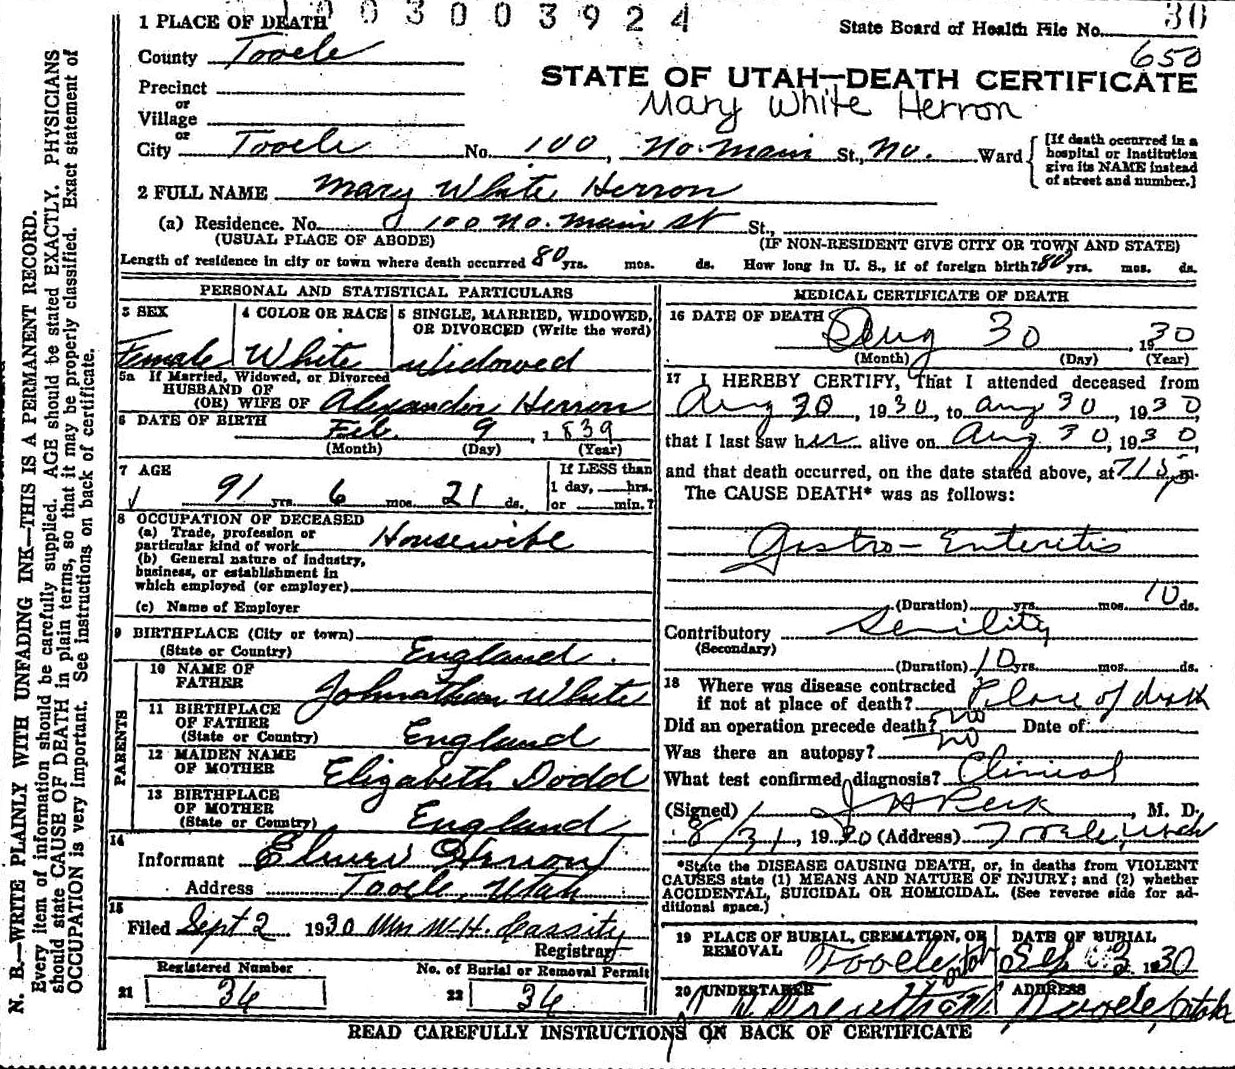 1003003924
1 PLACE OF DEATH
State Board of Health File No. 30
County Tooele
650
STATE OF UTAH—DEATH CERTIFICATE
Precinct
Mary White Herron
or
Village
or
City Tooele No. 100, No. Main St., No. Ward
[If death occurred in a hospital or institution give its NAME instead of street and number.]
2 FULL NAME Mary White Herron
(a) Residence. No. 100 No. Main St St.,
(USUAL PLACE OF ABODE) (IF NON-RESIDENT GIVE CITY OR TOWN AND STATE)
Length of residence in city or town where death occurred 80 yrs. mos. ds. How long in U. S., if of foreign birth? 80 yrs. mos. ds.
PERSONAL AND STATISTICAL PARTICULARS
3 SEX 4 COLOR OR RACE 5 SINGLE, MARRIED, WIDOWED, OR DIVORCED (Write the word)
Female White Widowed
5a If Married, Widowed, or Divorced
HUSBAND OF
(OR) WIFE OF Alexander Herron
6 DATE OF BIRTH Feb. 9, 1839
(Month) (Day) (Year)
7 AGE If LESS than
1 day, hrs.
91 yrs. 6 mos. 21 ds. or min.?
8 OCCUPATION OF DECEASED
(a) Trade, profession or
particular kind of work Housewife
(b) General nature of industry,
business, or establishment in
which employed (or employer)
(c) Name of Employer
9 BIRTHPLACE (City or town)
(State or Country) England.
PARENTS
10 NAME OF
FATHER Johnathan White
11 BIRTHPLACE
OF FATHER
(State or Country) England
12 MAIDEN NAME
OF MOTHER Elizabeth Dodd
13 BIRTHPLACE
OF MOTHER
(State or Country) England
14
Informant Elmer Herron
Address Tooele, Utah
15
Filed Sept 2 1930 Mrs W.H. Cassity
Registrar
Registered Number No. of Burial or Removal Permit
21 34 22 34
MEDICAL CERTIFICATE OF DEATH
16 DATE OF DEATH Aug 30, 1930
(Month) (Day) (Year)
17 I HEREBY CERTIFY, That I attended deceased from
Aug 30, 1930, to Aug 30, 1930,
that I last saw her alive on Aug 30, 1930
and that death occurred, on the date stated above, at 7 15 p m.
The CAUSE DEATH* was as follows:
Gastro-Enteritis
(Duration) yrs. mos. 10 ds.
Contributory Senility
(Secondary)
(Duration) 10 yrs. mos. ds.
18 Where was disease contracted
if not at place of death? Place of death
Did an operation precede death? no Date of
Was there an autopsy? no
What test confirmed diagnosis? Clinical
(Signed) J H Peck, M. D.
8/31, 1930 (Address) Tooele, Utah
*State the DISEASE CAUSING DEATH, or, in deaths from VIOLENT
CAUSES state (1) MEANS AND NATURE OF INJURY; and (2) whether
ACCIDENTAL, SUICIDAL OR HOMICIDAL. (See reverse side for ad-
ditional space.)
19 PLACE OF BURIAL, CREMATION, OR REMOVAL DATE OF BURIAL
Tooele Utah Sep 3 1930
20 UNDERTAKER ADDRESS
Tooele, Utah
READ CAREFULLY INSTRUCTIONS ON BACK OF CERTIFICATE
N. B.—WRITE PLAINLY WITH UNFADING INK—THIS IS A PERMANENT RECORD.
Every item of information should be carefully supplied. AGE should be stated EXACTLY. PHYSICIANS
should state CAUSE OF DEATH in plain terms, so that it may be properly classified. Exact statement of
OCCUPATION is very important. See instructions on back of certificate.